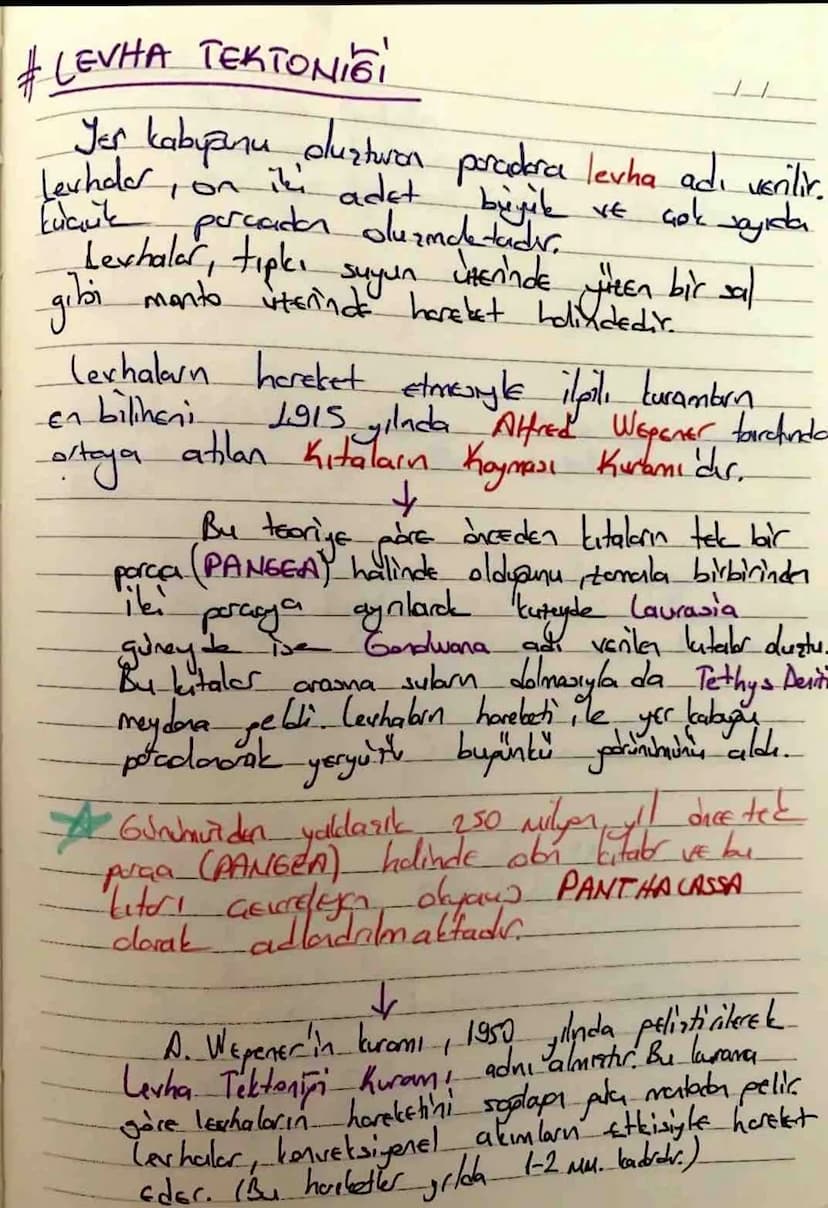 # LEVHA TEKTONİĞİ
Yer kabuğunu oluşturan parçalara levha adı verilir.
Levhalar, on iki adet büyük ve çok sayıda
küçük parçadan oluşmaktadır.
Levhalar, tıpkı suyun üzerinde yüzen bir sal
gibi manto üzerinde hareket halindedir.
Levhaların hareket etmesiyle ilgili kuramların
en bilineni 1915 yılında Alfred Wegener tarafından
ortaya atılan Kıtaların Kayması Kuramı'dır.
↓
Bu teoriye göre önceden kıtaların tek bir
parça (PANGEA) hâlinde olduğunu, zamanla birbirinden
iki parçaya ayrılarak kuzeyde Laurasia
güneyde ise Gondwana adı verilen kıtalar oluştu.
Bu kıtalar arasına suların dolmasıyla da Tethys Denizi
meydana geldi. Levhaların hareketi ile yer kabuğu
parçalanarak yeryüzü bugünkü görünümünü aldı.
Günümüzden yaklaşık 250 milyon yıl önce tek
parça (PANGEA) halinde olan kıtalar ve bu
kıtayı çevreleyen okyanus PANTHALASSA
olarak adlandırılmaktadır.
↓
A. Wegener'in kuramı, 1950 yılında geliştirilerek
Levha Tektoniği Kuramı adını almıştır. Bu kurama
göre levhaların hareketini sağlayan güç mantodan gelir.
Levhalar, konveksiyonel akımların etkisiyle hareket
eder. (Bu hareketler yılda 1-2 mm. kadardır.)